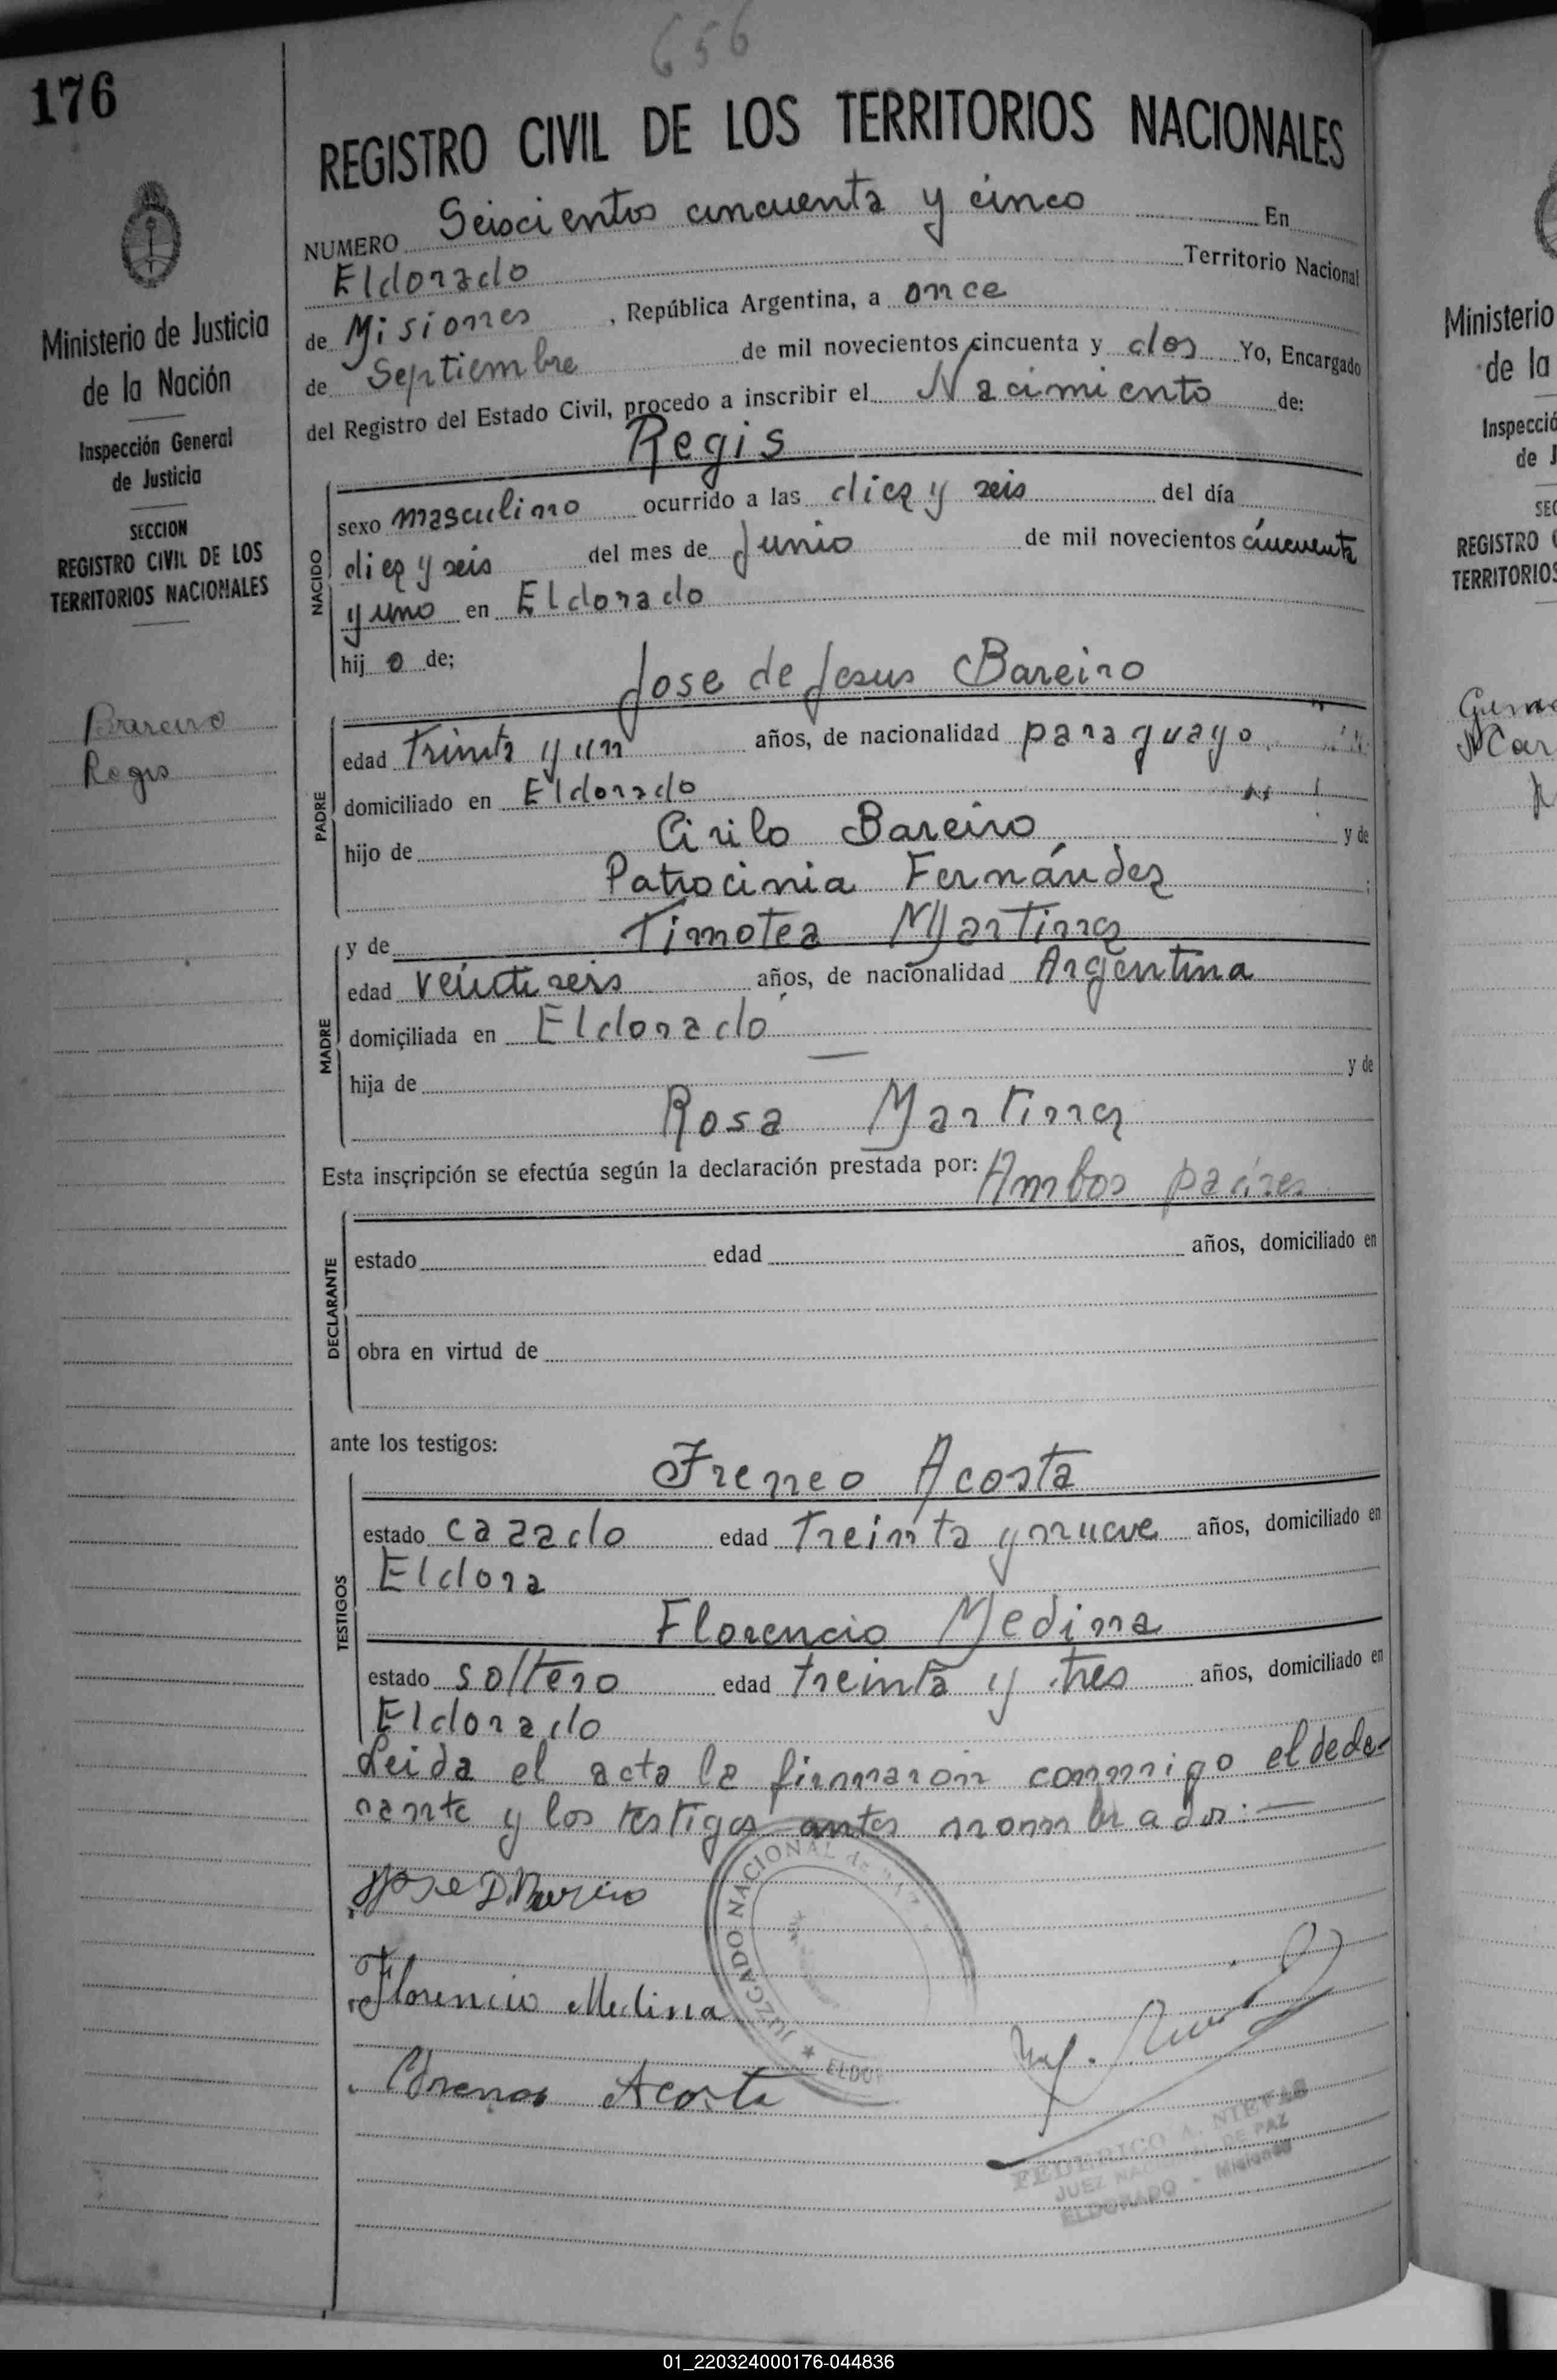 656
176
REGISTRO CIVIL DE LOS TERRITORIOS NACIONALES
Ministerio de Justicia
de la Nación
Inspección General
de Justicia
SECCION
REGISTRO CIVIL DE LOS
TERRITORIOS NACIONALES
Bareiro
Regis
NUMERO Seiscientos cincuenta y cinco En
Eldorado Territorio Nacional
de Misiones, República Argentina, a once
de Septiembre de mil novecientos cincuenta y dos Yo, Encargado
del Registro del Estado Civil, procedo a inscribir el Nacimiento de:
Regis
NACIDO
sexo masculino ocurrido a las diez y seis del día
diez y seis del mes de Junio de mil novecientos cincuenta
y uno en Eldorado
hij o de;
Jose de Jesus Bareiro
PADRE
edad Trinta y un años, de nacionalidad paraguayo
domiciliado en Eldorado
hijo de Cirilo Bareiro y de
Patrocinia Fernández
y de Timotea Martinez
MADRE
edad veinti seis años, de nacionalidad Argentina
domiciliada en Eldorado
hija de — y de
Rosa Martinez
Esta inscripción se efectúa según la declaración prestada por: Ambos padres
DECLARANTE
estado edad años, domiciliado en
obra en virtud de
ante los testigos:
TESTIGOS
Ireneo Acosta
estado cazado edad Treinta y nueve años, domiciliado en
Eldora
Florencio Medina
estado soltero edad treinta y tres años, domiciliado en
Eldorado
Leida el acta la firmaron conmigo el decla-
rante y los testigos antes nombrados:—
Jose D. Bareiro
Florencio Medina
Ireneo Acosta
JUZGADO NACIONAL de PAZ
★ ELDOR
FEDERICO A. NIEVAS
JUEZ NACIONAL DE PAZ
ELDORADO - Misiones
Ministerio
de la
Inspecció
de J
SEC
REGISTRO
TERRITORIOS
Car
01_220324000176-044836